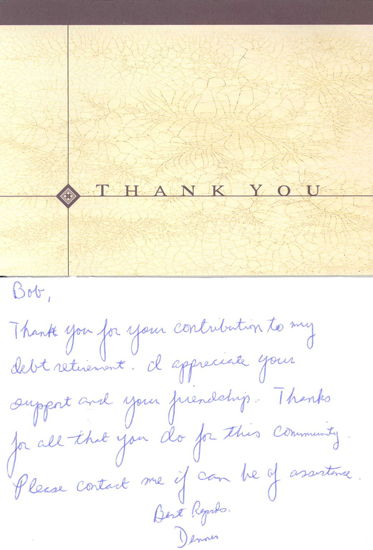 THANK YOU
Bob,
Thank you for your contribution to my
debt retirement. I appreciate your
support and your friendship. Thanks
for all that you do for this community.
Please contact me if can be of assistance.
Best Regards.